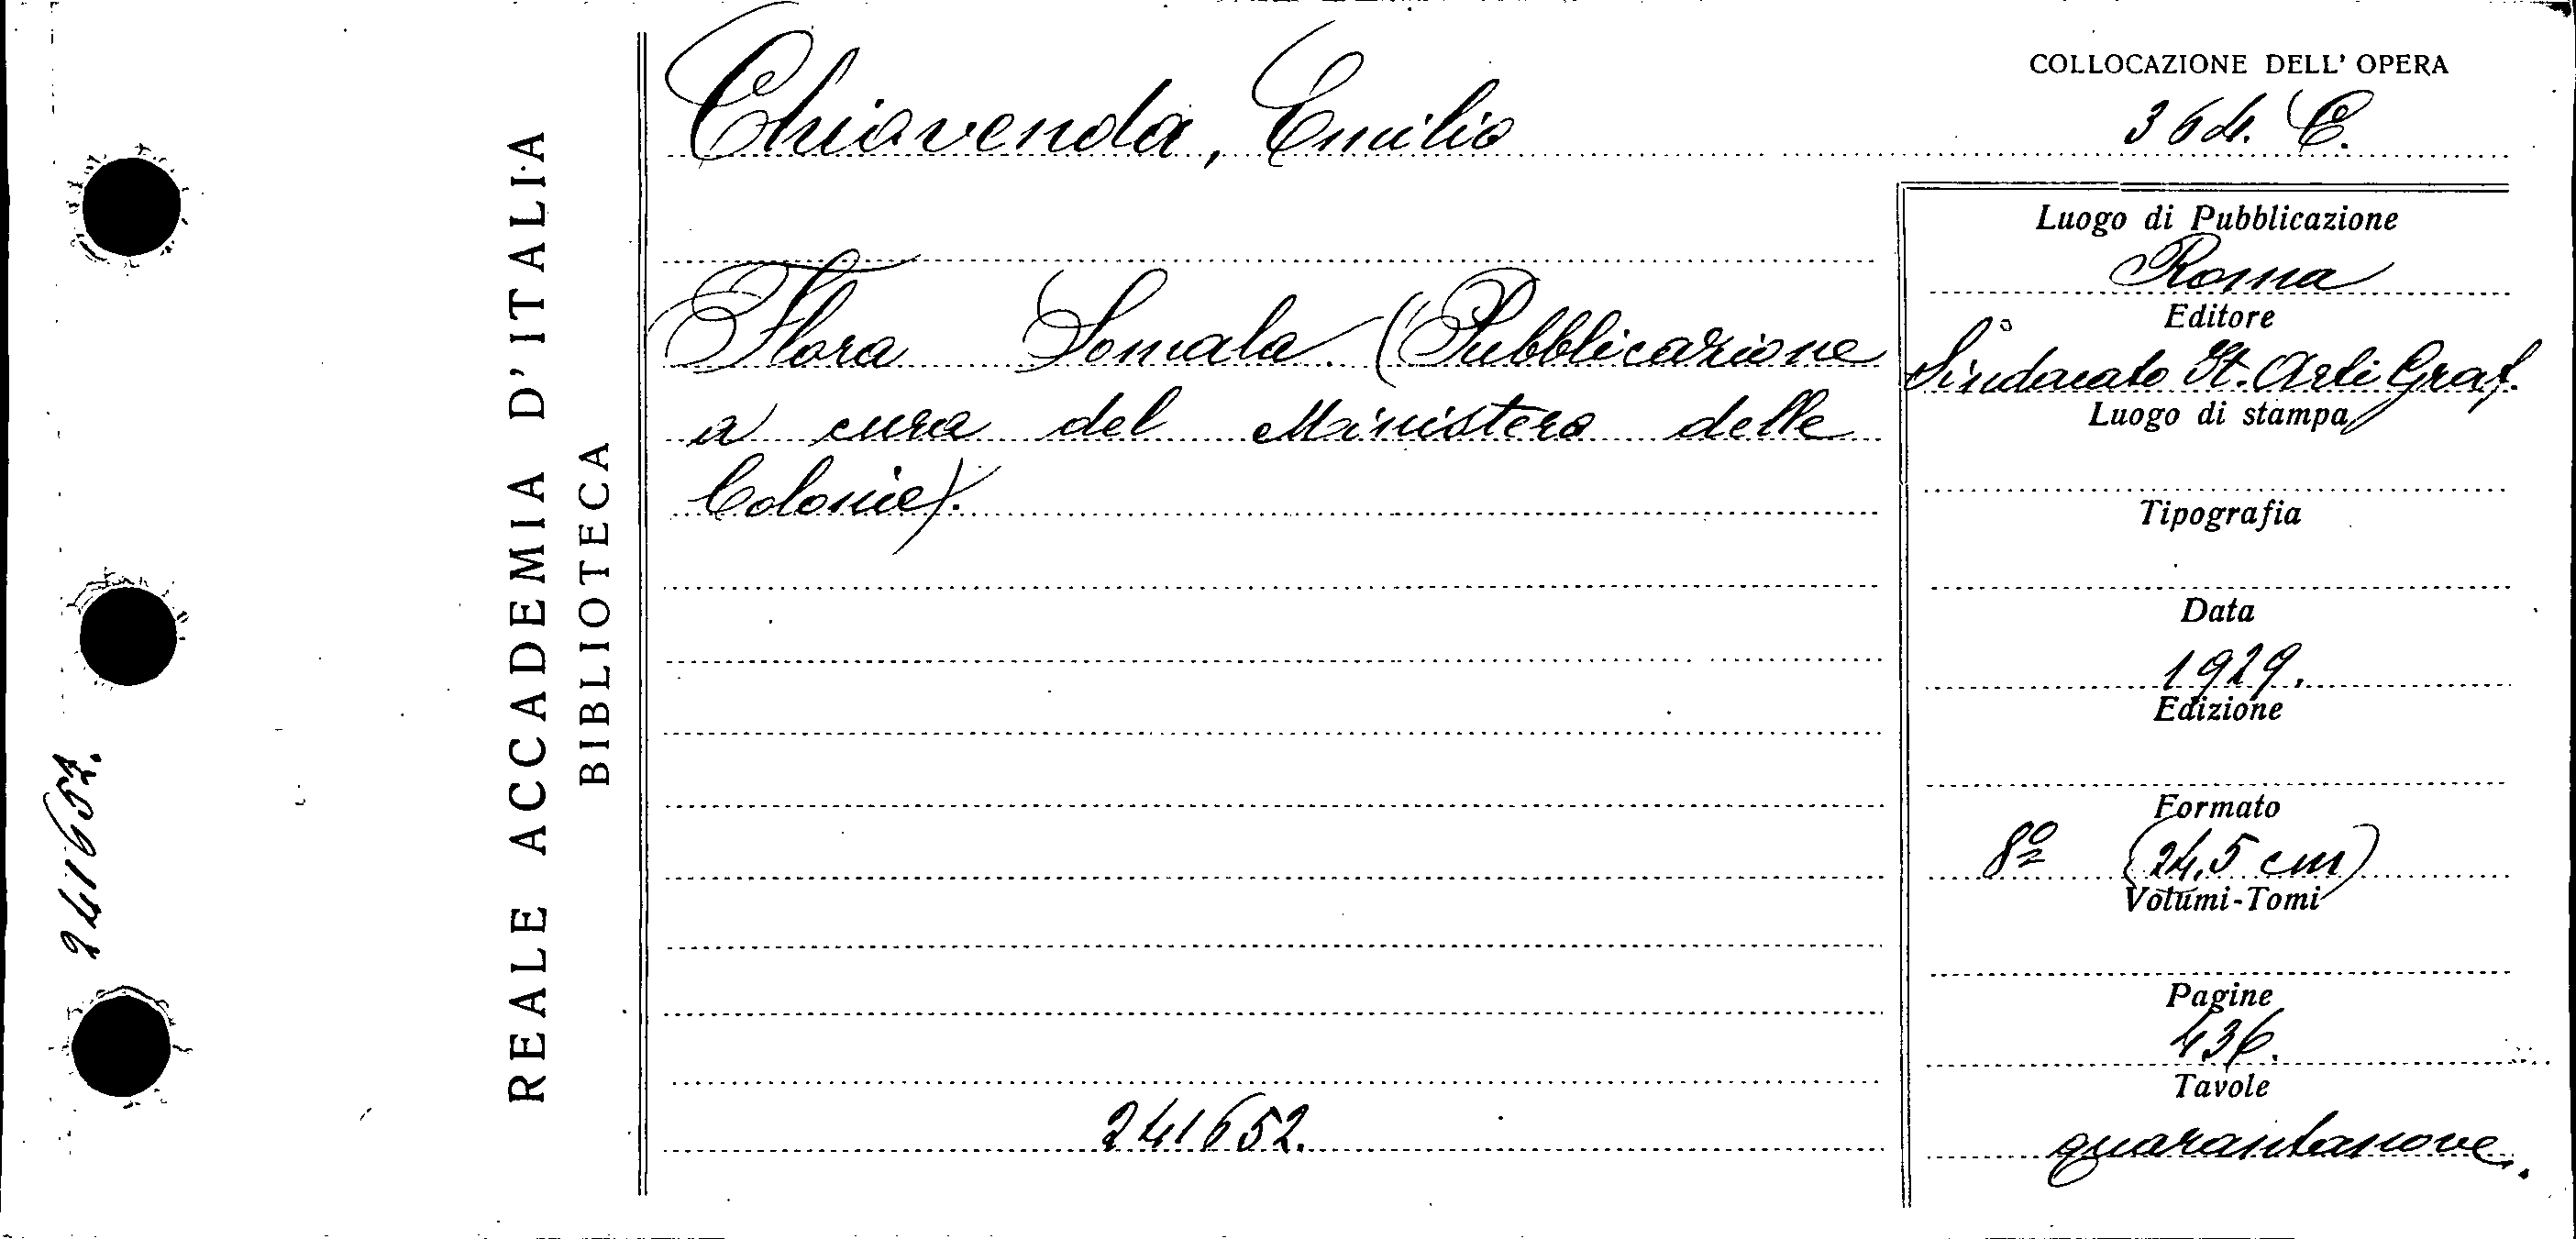 241652.
REALE ACCADEMIA D'ITALIA
BIBLIOTECA
Chiavenda, Emilio
Flora Somala. (Pubblicazione
a cura del Ministero delle
Colonie).
241652.
COLLOCAZIONE DELL' OPERA
364. C.
Luogo di Pubblicazione
Roma
Editore
Sindacato It. Arti Graf.
Luogo di stampa
Tipografia
Data
1929.
Edizione
Formato
8º (24,5 cm)
Volumi-Tomi
Pagine
436.
Tavole
quarantanove.